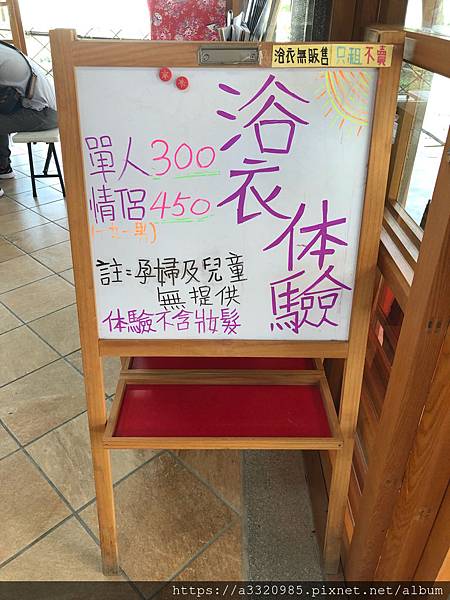 浴衣無販售 只租不賣
浴衣体驗
單人300
情侶450
(一女一男)
註:孕婦及兒童
無提供
体驗不含妝髮
https://a3320985.pixnet.net/album